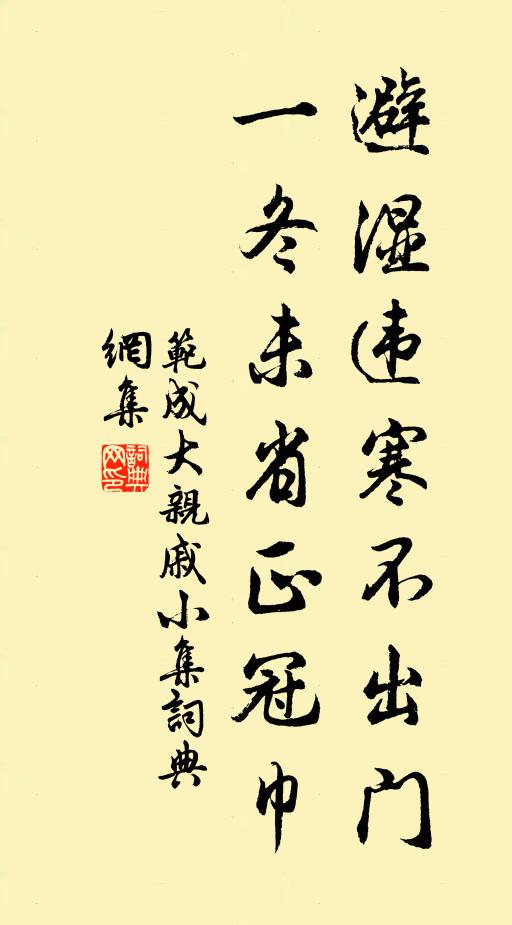 避湿违寒不出门
一冬未省正冠巾
範成大親戚小集詞典
網集
詞典
网印